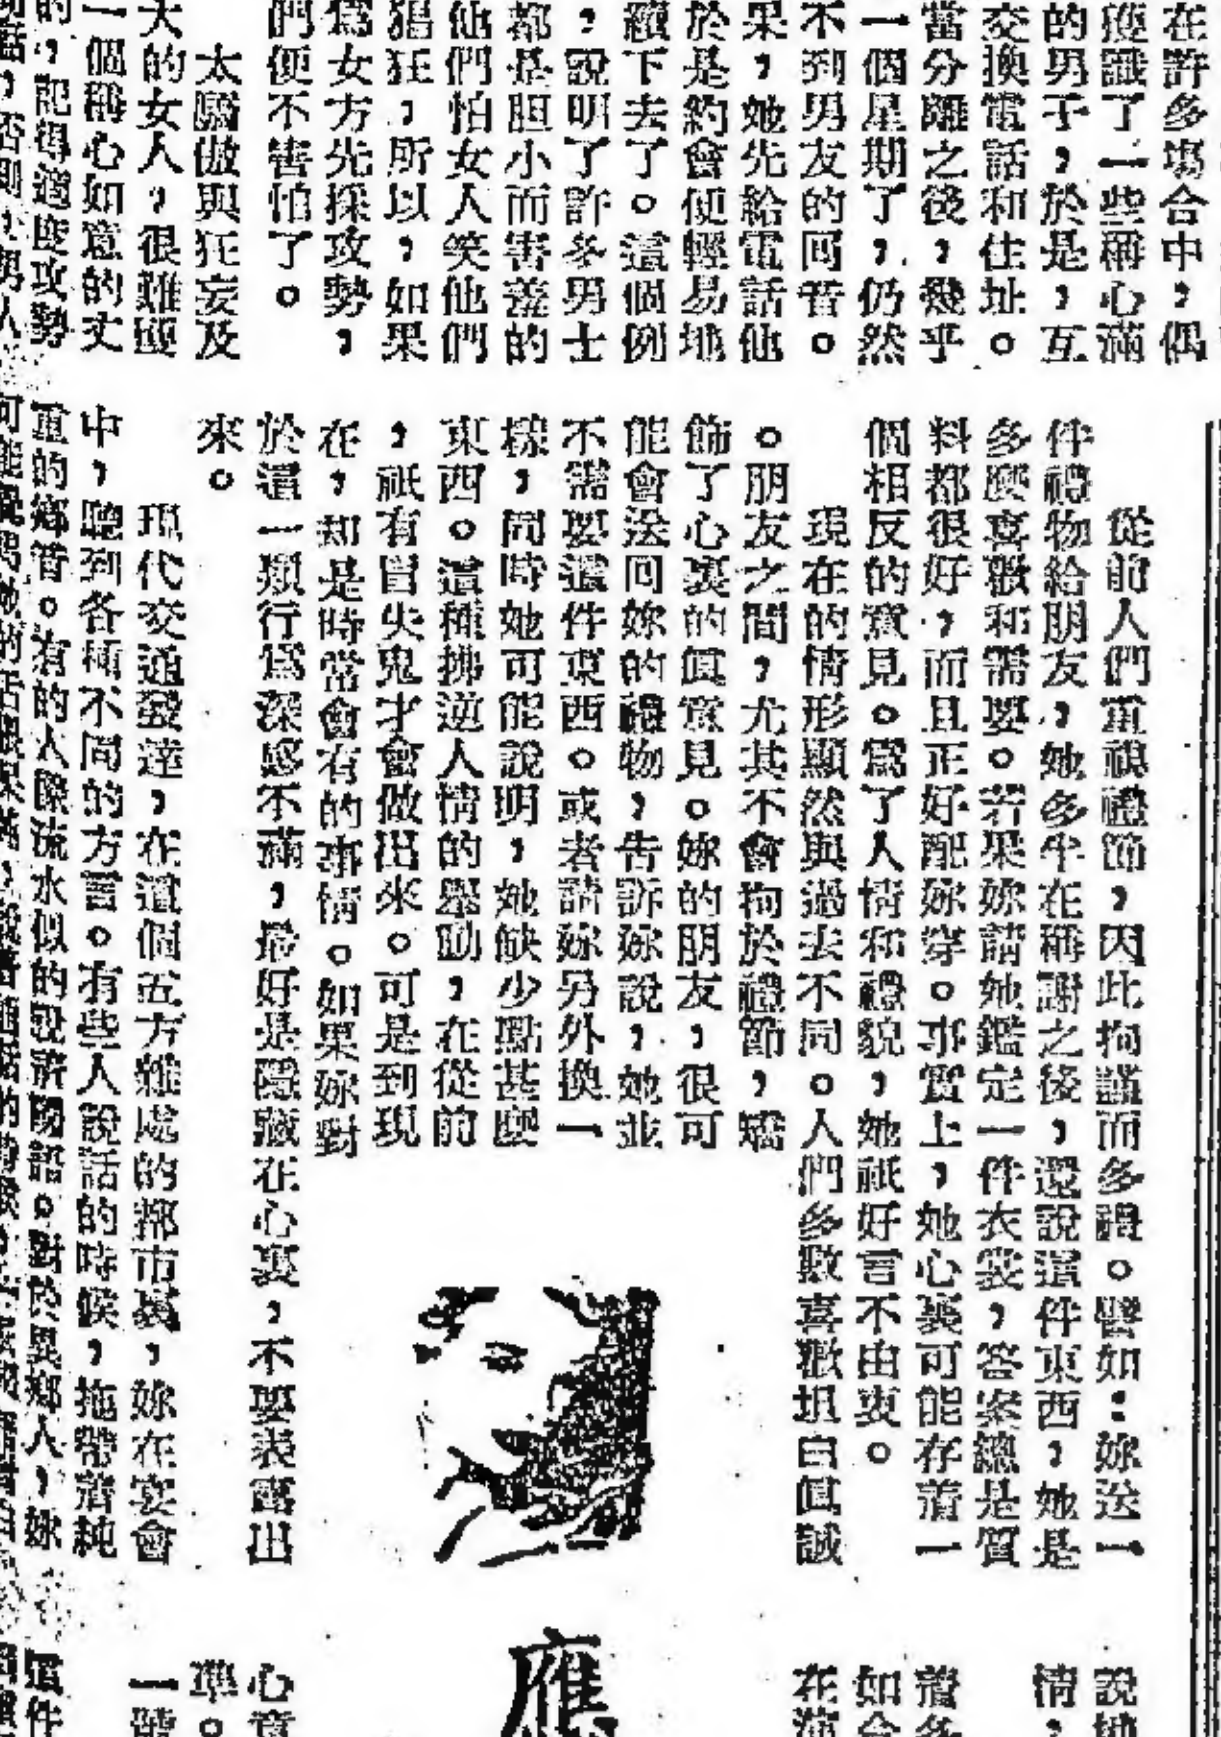 在許多場合中,偶
一些稱心滿
的男子,於是,互
交換電話和住址。
當分離之後,幾乎
一個星期了,仍然
不到男友的回音。
果,她先給電話他
於是約會便輕易地
續下去了。這個例
,說明了許多男士
都是胆小而害羞的
他們怕女人笑他們
猖狂,所以,如果
爲女方先採攻勢,
們便不害怕了。
太驕傲與狂妄及
大的女人,很難
一個稱心如意的丈
的,記得適度攻勢
從前人們重視禮節,因此拘謹而多禮。譬如:妳送一
件禮物給朋友,她多半在稱謝之後,還說這件東西,她是
多麼喜歡和需要。若果妳請她鑑定一件衣裳,答案總是質
料都很好,而且正好配妳穿。事實上,她心裏可能存着一
個相反的意見。爲了人情和禮貌,她祇好言不由衷。
現在的情形顯然與過去不同。人們多數喜歡坦白眞誠
。朋友之間,尤其不會拘於禮節,矯
飾了心裏的眞意見。妳的朋友,很可
能會送回妳的禮物,告訴妳說,她並
不需要這件東西。或者請妳另外換一
樣,同時她可能說明,她缺少點甚麼
東西。這種拂逆人情的舉動,在從前
,祇有冒失鬼才會做出來。可是到現
在,却是時常會有的事情。如果妳對
於這一類行爲深感不滿,最好是隱藏在心裏,不要表露出
來。
現代交通發達,在這個五方雜處的都市裏,妳在宴會
中,聽到各種不同的方言。有些人說話的時候,拖帶着純
重的鄉音。有的人際流水似的說着國語。對於異鄉人,妳
說
情,
着多
如
在
應
心意
準。
一
這件